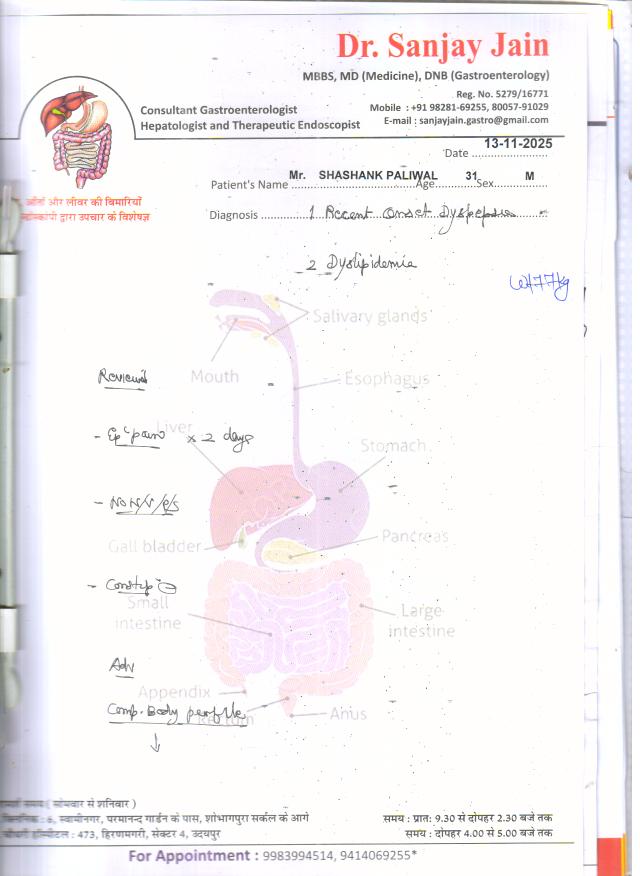 Dr. Sanjay Jain
MBBS, MD (Medicine), DNB (Gastroenterology)
Reg. No. 5279/16771
Consultant Gastroenterologist
Mobile : +91 98281-69255, 80057-91029
Hepatologist and Therapeutic Endoscopist
E-mail : sanjayjain.gastro@gmail.com
Date 13-11-2025
Patient's Name Mr. SHASHANK PALIWAL Age 31 Sex M
आँतों और लीवर की बिमारियाँ
द्वारा उपचार के विशेषज्ञ
Diagnosis 1 Recent Onset Dyspepsia
2 Dyslipidemia
Wt 77 kg
Salivary glands
Mouth
Esophagus
Reviewed
Liver
- Ep. pain x 2 days
Stomach
- No N/V/
Gall bladder
Pancreas
- Constip
Small intestine
Large intestine
Adv
Appendix
Comp. Body profile
Rectum
Anus
↓
समय ( सोमवार से शनिवार )
क्लिनिक : 6, स्वामीनगर, परमानन्द गार्डन के पास, शोभागपुरा सर्कल के आगे समय : प्रात: 9.30 से दोपहर 2.30 बजे तक
चौधरी हॉस्पीटल : 473, हिरणमगरी, सेक्टर 4, उदयपुर समय : दोपहर 4.00 से 5.00 बजे तक
For Appointment : 9983994514, 9414069255*